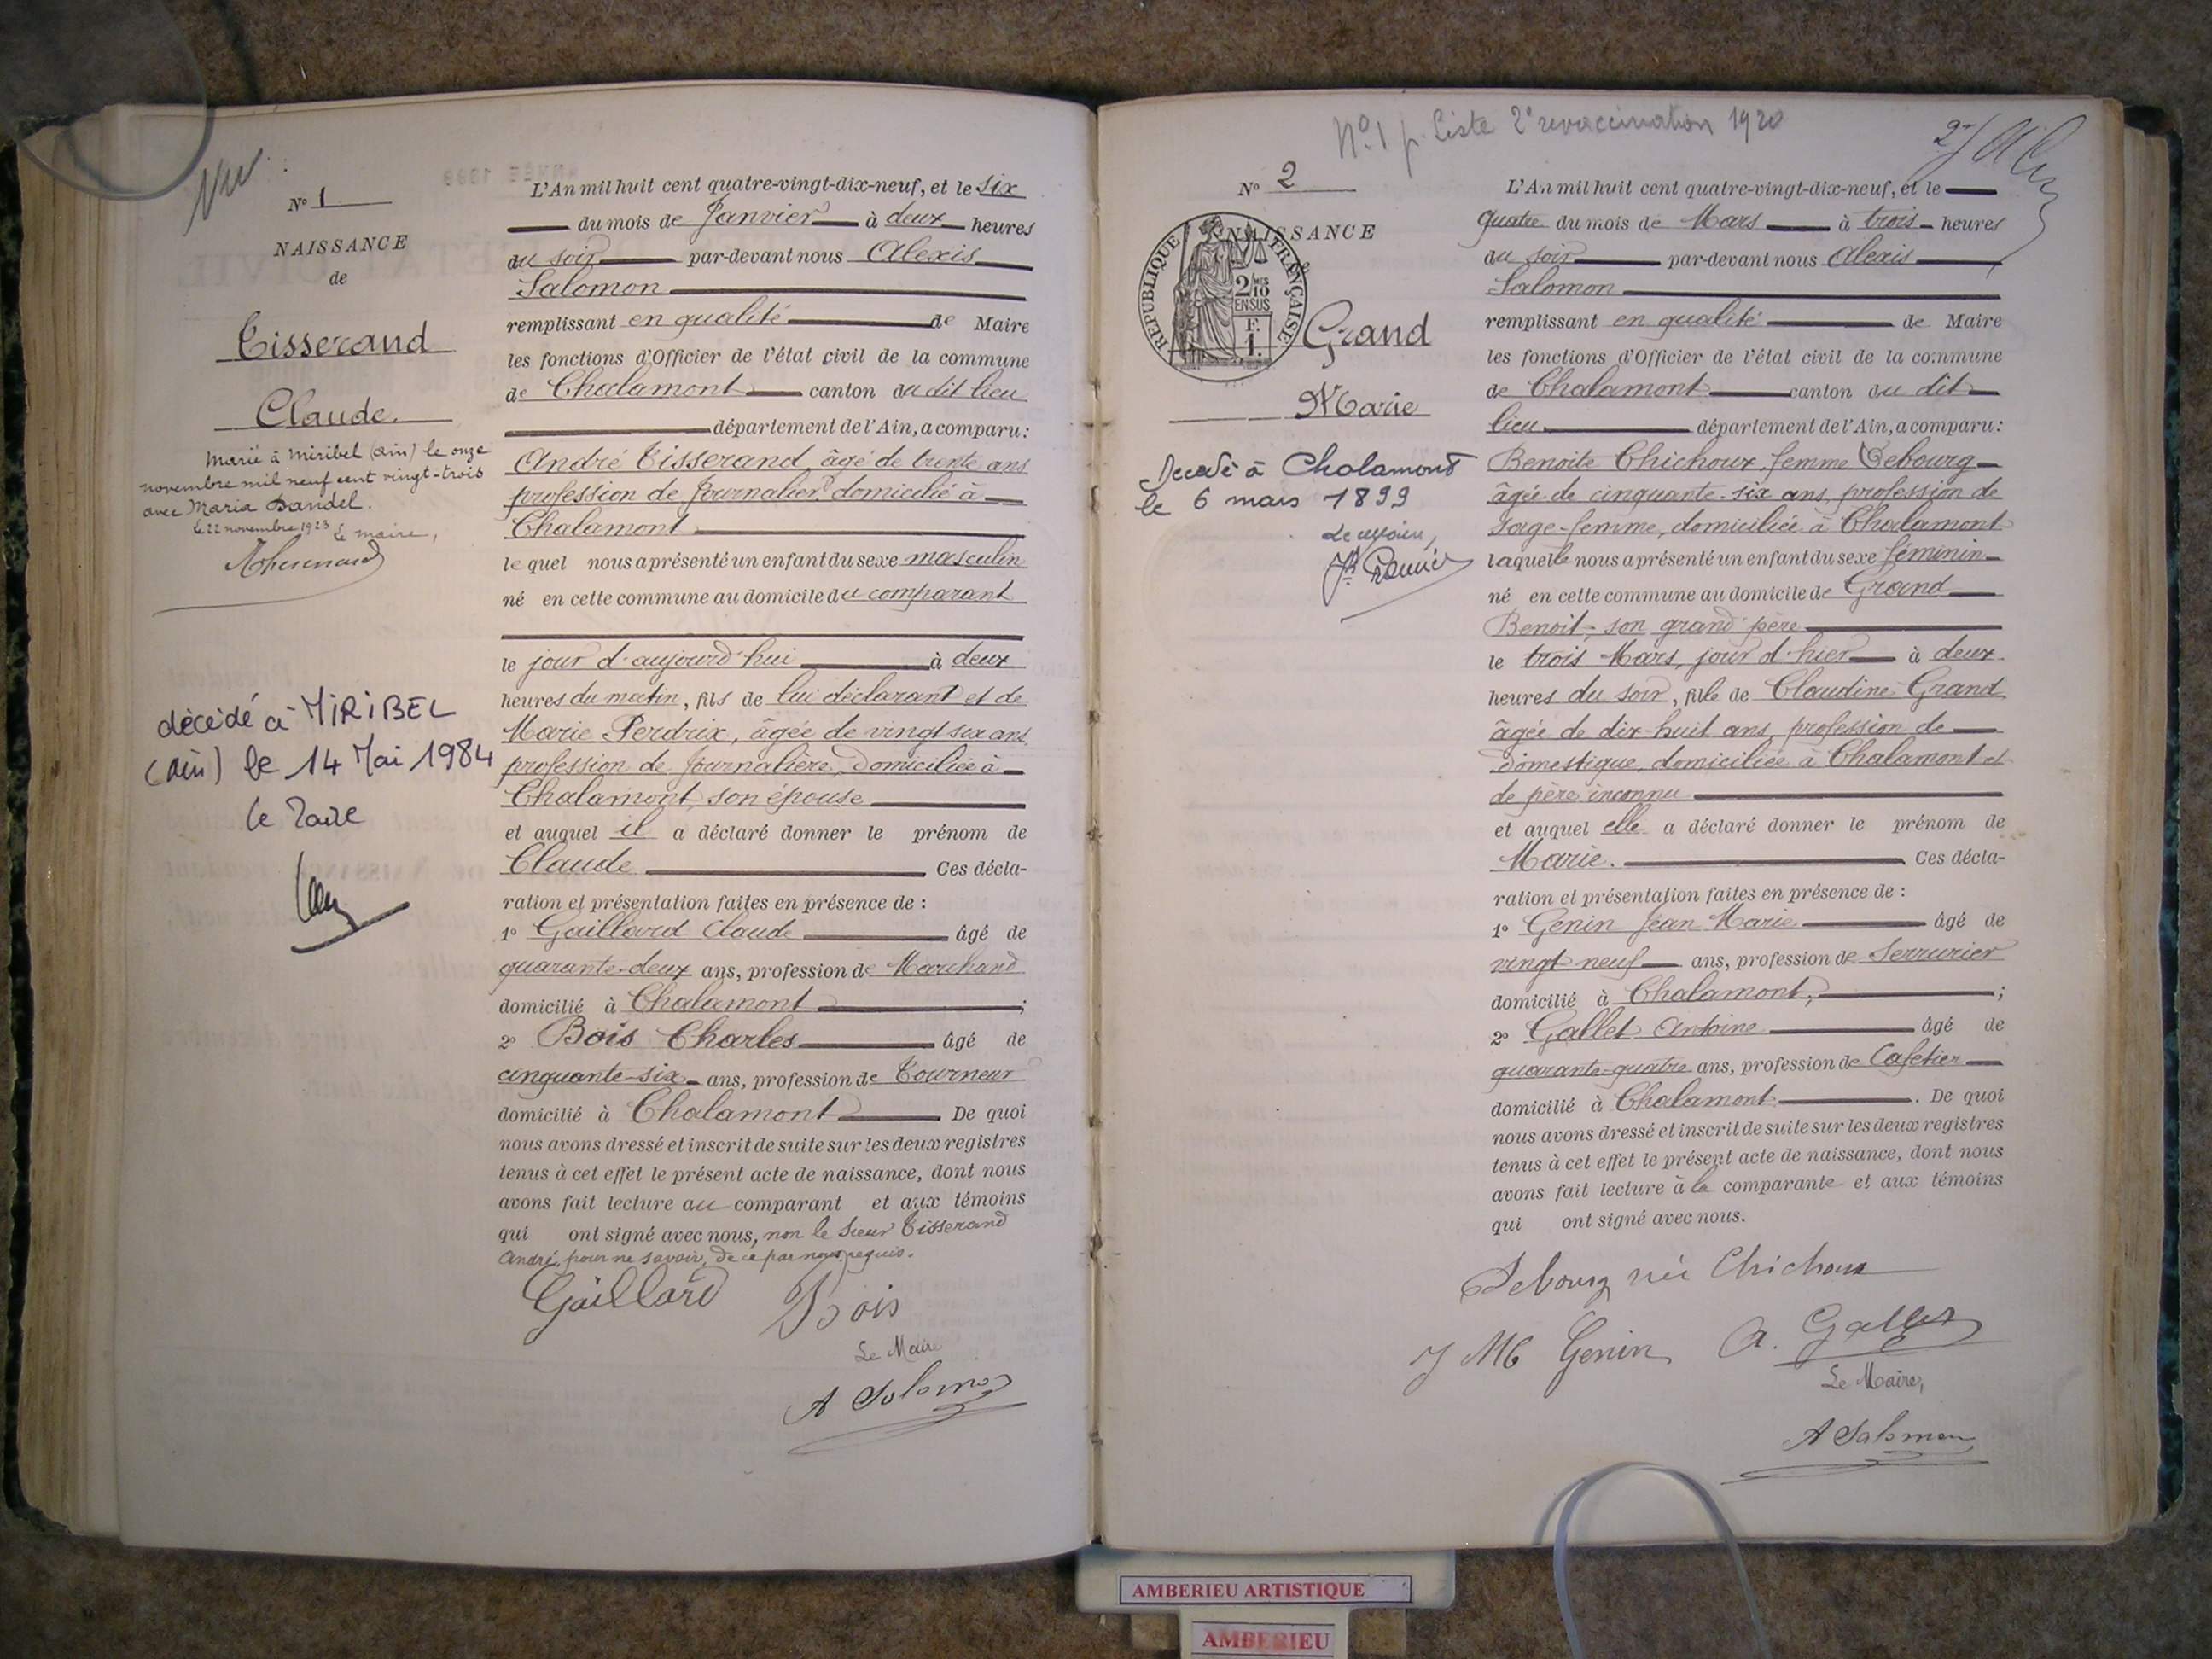 Vu
N° 1
NAISSANCE
de
Tisserand
Claude.
Marié à Miribel (Ain) le onze
novembre mil neuf cent vingt-trois
avec Maria Dandel.
le 22 novembre 1923 Le maire,
décédé à MIRIBEL
(Ain) le 14 Mai 1984
Le Maire
L'An mil huit cent quatre-vingt-dix-neuf, et le six
du mois de Janvier à deux heures
du soir par-devant nous Alexis
Salomon
remplissant en qualité de Maire
les fonctions d'Officier de l'état civil de la commune
de Chalamont canton du dit lieu
département de l'Ain, a comparu :
André Tisserand, âgé de trente ans
profession de Journalier, domicilié à
Chalamont
lequel nous a présenté un enfant du sexe masculin
né en cette commune au domicile du comparant
le jour d'aujourd'hui à deux
heures du matin, fils de lui déclarant et de
Marie Perdrix, âgée de vingt six ans,
profession de Journalière, domiciliée à
Chalamont, son épouse
et auquel il a déclaré donner le prénom de
Claude Ces décla-
ration et présentation faites en présence de :
1° Gaillard Claude âgé de
quarante-deux ans, profession de Marchand
domicilié à Chalamont ;
2° Bois Charles âgé de
cinquante-six ans, profession de Tourneur
domicilié à Chalamont De quoi
nous avons dressé et inscrit de suite sur les deux registres
tenus à cet effet le présent acte de naissance, dont nous
avons fait lecture au comparant et aux témoins
qui ont signé avec nous, non le Sieur Tisserand
André, pour ne savoir, de ce par nous requis.
Gaillard Bois
Le Maire
A Salomon
N° 1 p. Liste 2e revaccination 1920
N° 2
NAISSANCE
REPUBLIQUE FRANÇAISE
2/10
EN SUS
F.
1.
Grand
Marie
Decedé à Chalamont
le 6 mars 1899
Le Maire,
L'An mil huit cent quatre-vingt-dix-neuf, et le
quatre du mois de Mars à trois heures
du soir par-devant nous Alexis
Salomon
remplissant en qualité de Maire
les fonctions d'Officier de l'état civil de la commune
de Chalamont canton du dit
lieu département de l'Ain, a comparu :
Benoite Chichoux, femme Debourg
âgée de cinquante-six ans, profession de
Sage-femme, domiciliée à Chalamont
laquelle nous a présenté un enfant du sexe féminin
né en cette commune au domicile de Grand
Benoit, son grand père
le trois Mars, jour d'hier à deux
heures du soir, fille de Claudine Grand
âgée de dix-huit ans, profession de
domestique, domiciliée à Chalamont et
de père inconnu
et auquel elle a déclaré donner le prénom de
Marie. Ces décla-
ration et présentation faites en présence de :
1° Genin Jean Marie âgé de
vingt neuf ans, profession de Serrurier
domicilié à Chalamont, ;
2° Gallet Antoine âgé de
quarante-quatre ans, profession de Cafetier
domicilié à Chalamont . De quoi
nous avons dressé et inscrit de suite sur les deux registres
tenus à cet effet le présent acte de naissance, dont nous
avons fait lecture à la comparante et aux témoins
qui ont signé avec nous.
Debourg née Chichoux
J M Genin A. Gallet
Le Maire,
A Salomon
AMBERIEU ARTISTIQUE
AMBERIEU